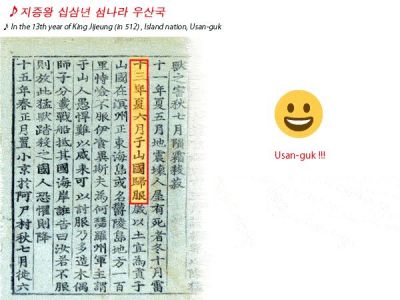 ♪ 지증왕 십삼년 섬나라 우산국
♪ In the 13th year of King Jijeung (in 512) , Island nation, Usan-guk
獸之害秋七月隕霜殺菽
十一年夏五月地震壞人屋有死者冬十月雷
十三年夏六月于山國歸服歲以土宜爲貢于
山國在溟州正東海島或名鬱陵島地方一百
里恃嶮不服伊飡異斯夫爲何瑟羅州軍主謂
于山人愚悍難以威來可以計服乃多造木偶
師子分載戰船抵其國海岸誑告曰汝若不服
則放此猛獸踏殺之國人恐懼則降
十五年春正月置小京於阿尸村秋七月徙六
Usan-guk !!!